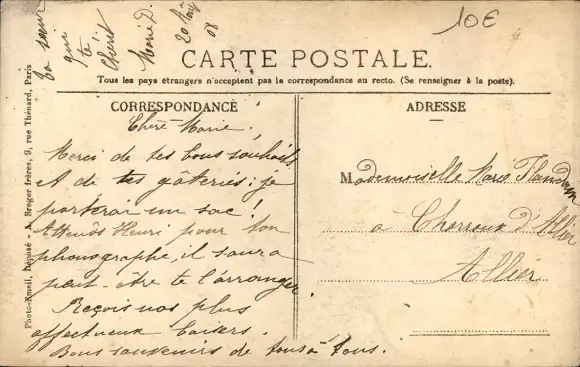 10€
Ta sœur
qui
te
chérit
Marie D.
20 08
CARTE POSTALE.
Tous les pays étrangers n'acceptent pas la correspondance au recto. (Se renseigner à la poste).
CORRESPONDANCE
ADRESSE
Chère Marie,
Merci de tes bons souhaits
et de tes gâteries; je
porterai un sac!
Attends Henri pour ton
phonographe, il saura
peut-être te l'arranger.
Reçois nos plus
affectueux baisers.
Bons souvenirs de tous à tous.
Mademoiselle Marie
à d'Allier
Allier
Photo-Email, Déposé - A. Breger frères, 9, rue Thénard, Paris